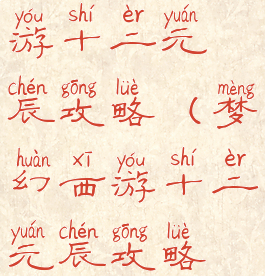 yóu shí èr yuán
游十二元
chén gōng lüè mèng
辰攻略（梦
huàn xī yóu shí èr
幻西游十二
yuán chén gōng lüè
元辰攻略